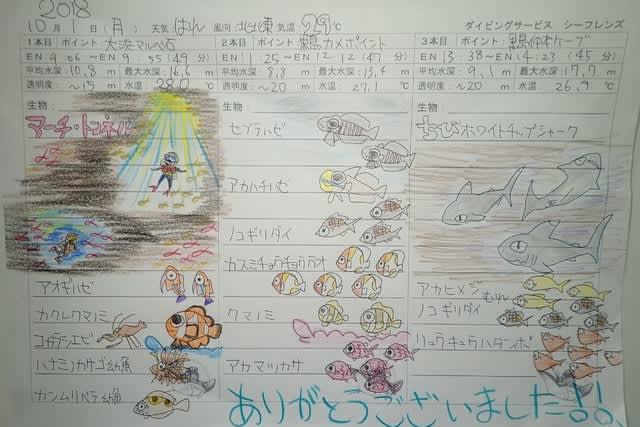 2018
10月1日(月) 天気 はれ 風向 北北東 気温 29℃ ダイビングサービス シーフレンズ
1本目 ポイント 大浜マルベ石
EN 9:06 ～EN 9:55 (49分)
平均水深 10.8 m 最大水深 16.6 m
透明度: ～15 m 水温 28.0℃
生物:
マーチ・トンネル
アオギハゼ
カクレクマノミ
コガラシエビ
ハナミノカサゴ幼魚
カンムリベラ幼魚
2本目 ポイント 黒島カメポイント
EN 11:25 ～EN 12:12 (47分)
平均水深 8.8 m 最大水深 13.4 m
透明度: ～20 m 水温 27.1℃
生物:
セダテハゼ
アカハチハゼ
ノコギリダイ
カスミチョウチョウウオ
クマノミ
アカマツカサ
3本目 ポイント: 黒島仲本ケーブ
EN 13:38 ～EN 14:23 (45分)
平均水深 9.1 m 最大水深 17.7 m
透明度: ～20 m 水温: 26.9℃
生物:
ちびホワイトチップシャーク
アカヒメジ
ノコギリダイ むれ
リュウキュウハタンポ
ありがとうございました!!